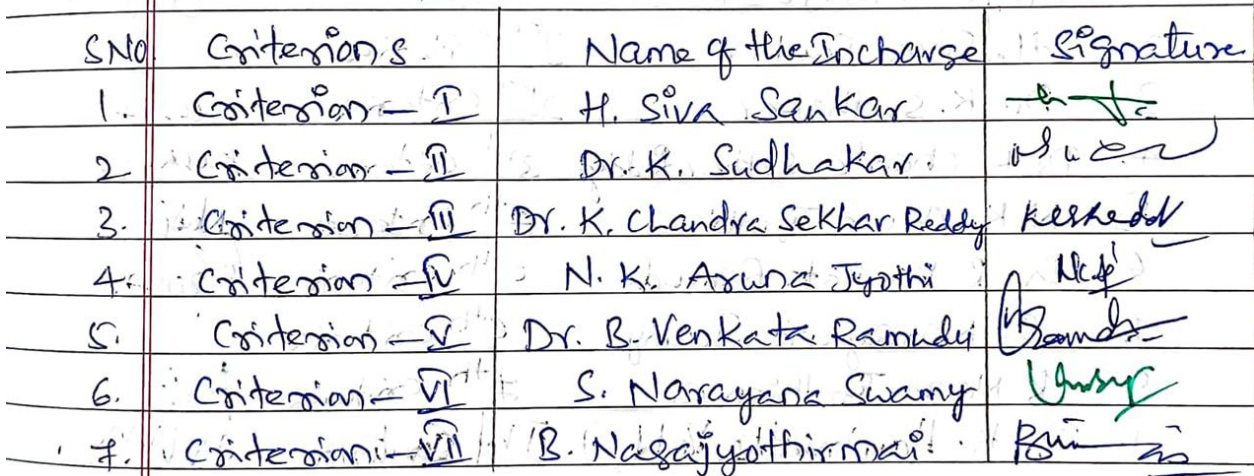 SNO Criterions Name of the Incharge Signature
1. Criterion - I H. Siva Sankar
2 Criterion - II Dr. K. Sudhakar
3. Criterion - III Dr. K. Chandra Sekhar Reddy
4. Criterion - IV N. K. Aruna Jyothi
5. Criterion - V Dr. B. Venkata Ramudu
6. Criterion - VI S. Narayana Swamy
7. Criterion - VII B. Nagajyothirmai